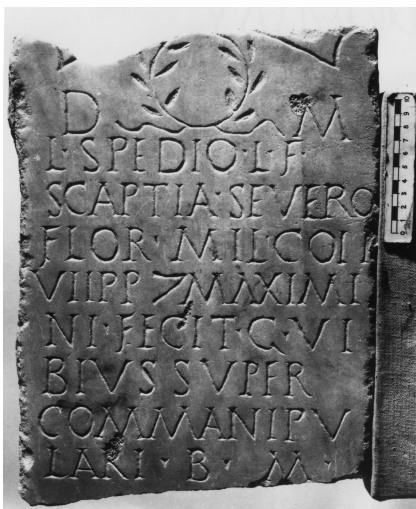 D M
L · SPEDIO · L · F ·
SCAPTIA · SEVERO
FLOR · MIL · COH
VIIPP 7 MAXIMI
NI · FECIT · C · VI
BIVS SVPER
COMMANIPV
LARI · B · M ·